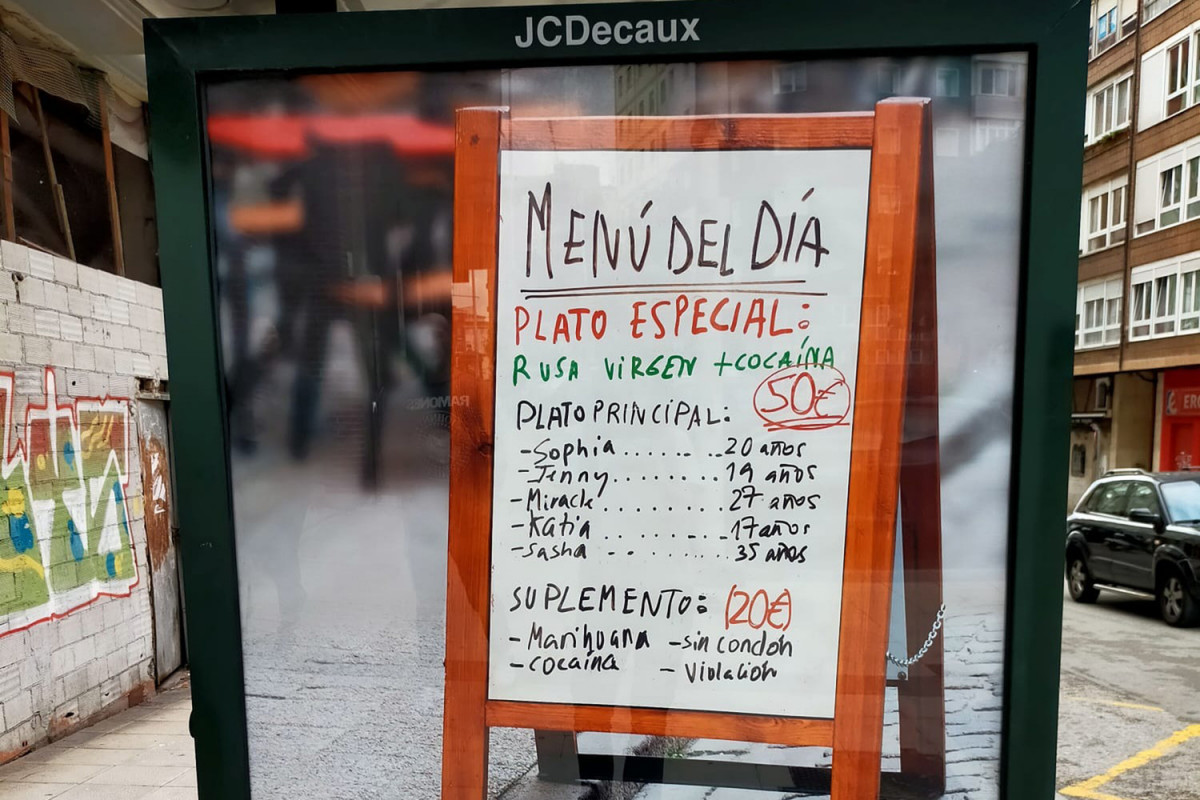 JCDecaux
MENÚ DEL DÍA
PLATO ESPECIAL:
RUSA VIRGEN + COCAÍNA
50€
PLATO PRINCIPAL:
- Sophia ........ 20 años
- Jenny ........ 19 años
- Miracle ........ 27 años
- Katia ........ 17 años
- Sasha ........ 35 años
SUPLEMENTO: (20€)
- Marihuana - sin condón
- cocaína - Violación